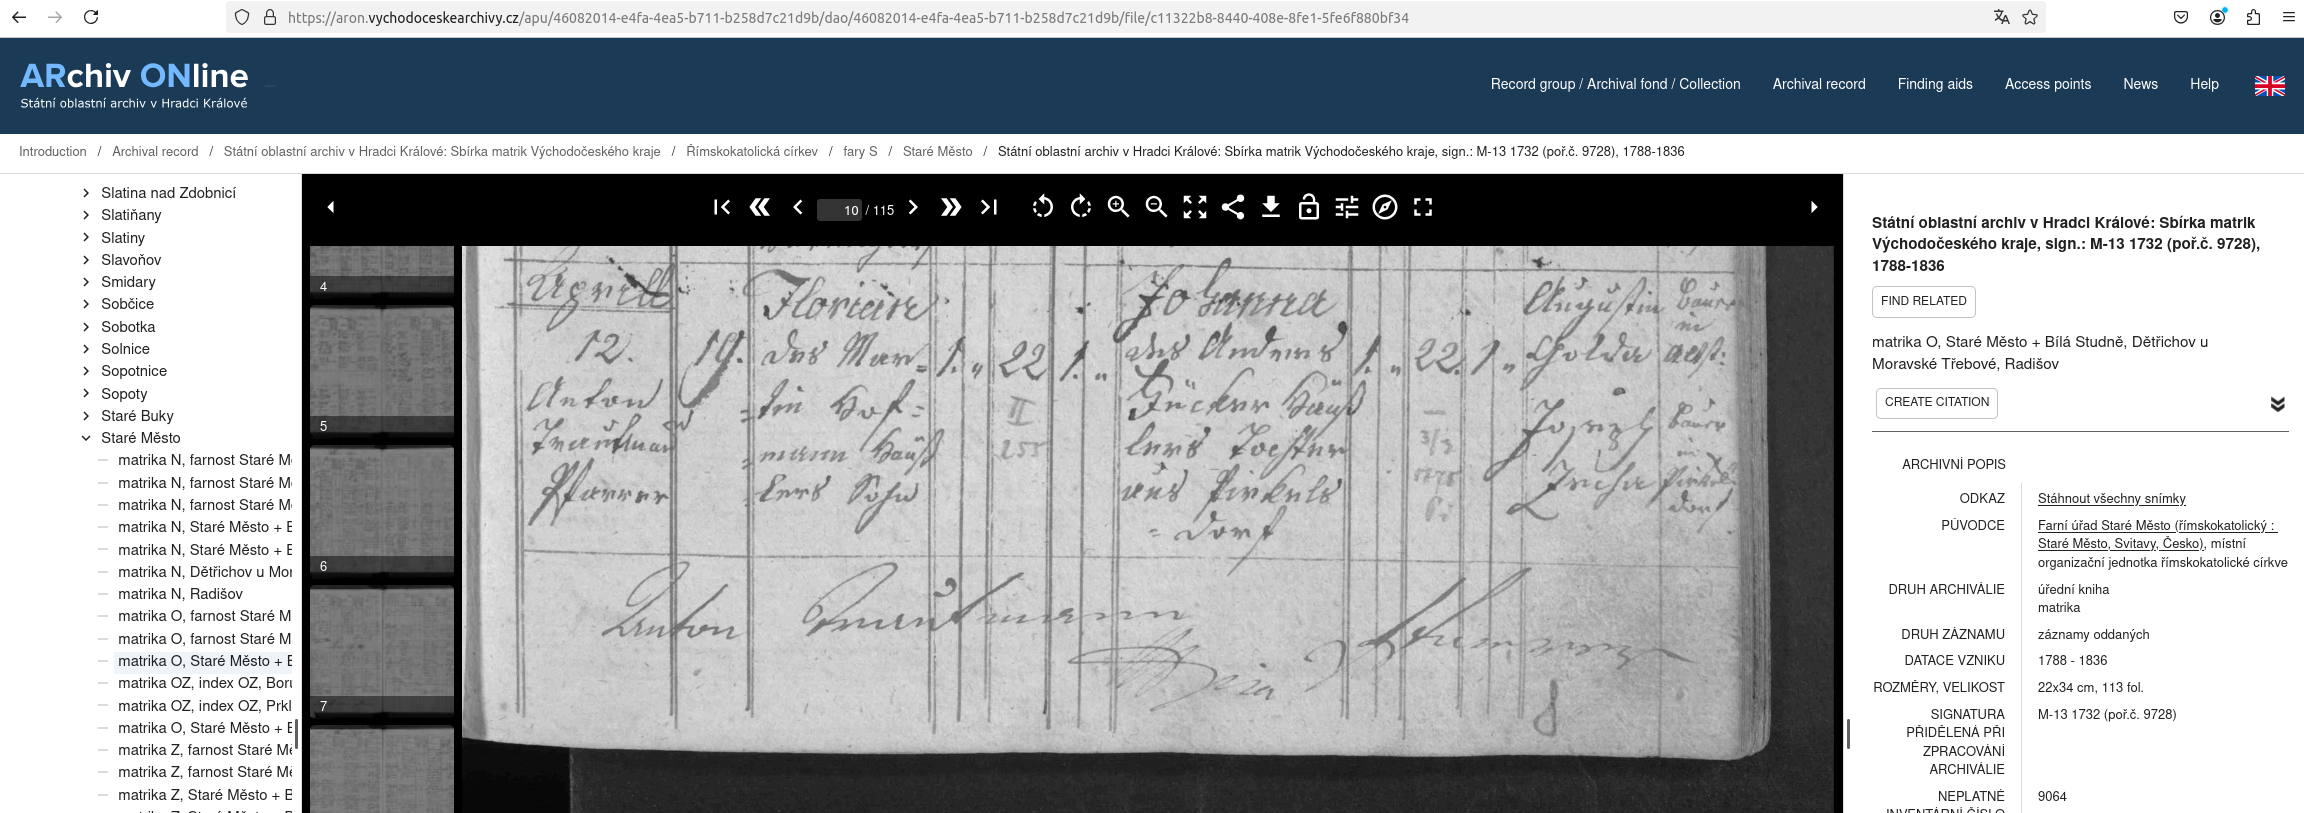 https://aron.vychodoceskearchivy.cz/apu/46082014-e4fa-4ea5-b711-b258d7c21d9b/dao/46082014-e4fa-4ea5-b711-b258d7c21d9b/file/c11322b8-8440-408e-8fe1-5fe6f880bf34
ARchiv ONline
Státní oblastní archiv v Hradci Králové
Record group / Archival fond / Collection Archival record Finding aids Access points News Help
Introduction / Archival record / Státní oblastní archiv v Hradci Králové: Sbírka matrik Východočeského kraje / Římskokatolická církev / fary S / Staré Město / Státní oblastní archiv v Hradci Králové: Sbírka matrik Východočeského kraje, sign.: M-13 1732 (poř.č. 9728), 1788-1836
Slatina nad Zdobnicí
Slatiňany
Slatiny
Slavoňov
Smidary
Sobčice
Sobotka
Solnice
Sopotnice
Sopoty
Staré Buky
Staré Město
matrika N, farnost Staré M
matrika N, farnost Staré M
matrika N, farnost Staré M
matrika N, Staré Město + B
matrika N, Staré Město + B
matrika N, Dětřichov u Mor
matrika N, Radišov
matrika O, farnost Staré M
matrika O, farnost Staré M
matrika O, Staré Město + B
matrika OZ, index OZ, Boru
matrika OZ, index OZ, Prkl
matrika O, Staré Město + B
matrika Z, farnost Staré Mě
matrika Z, farnost Staré Mě
matrika Z, Staré Město + B
10 / 115
4
5
6
7
Aprill
12.
Anton
Trautman
Pfarrer
19.
Florian
des Mar=
=tin Hof=
=mann Häuß
lers Sohn
1. " 22 1. "
II
255
Johanna
des Anders
Häuß
lers Tochter
aus Pirkels
=dorf
1. " 22. 1 "
Augustin Bauer
in
Altst:
Joseph Bauer
in
Pirkels
dorf
Anton Trautmann
Státní oblastní archiv v Hradci Králové: Sbírka matrik
Východočeského kraje, sign.: M-13 1732 (poř.č. 9728),
1788-1836
FIND RELATED
matrika O, Staré Město + Bílá Studně, Dětřichov u
Moravské Třebové, Radišov
CREATE CITATION
ARCHIVNÍ POPIS
ODKAZ Stáhnout všechny snímky
PŮVODCE Farní úřad Staré Město (římskokatolický :
Staré Město, Svitavy, Česko), místní
organizační jednotka římskokatolické církve
DRUH ARCHIVÁLIE úřední kniha
matrika
DRUH ZÁZNAMU záznamy oddaných
DATACE VZNIKU 1788 - 1836
ROZMĚRY, VELIKOST 22x34 cm, 113 fol.
SIGNATURA PŘIDĚLENÁ PŘI ZPRACOVÁNÍ ARCHIVÁLIE M-13 1732 (poř.č. 9728)
NEPLATNÉ 9064